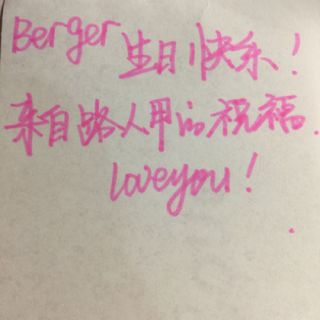 Berger 生日快乐!
来自路人甲的祝福.
love you!